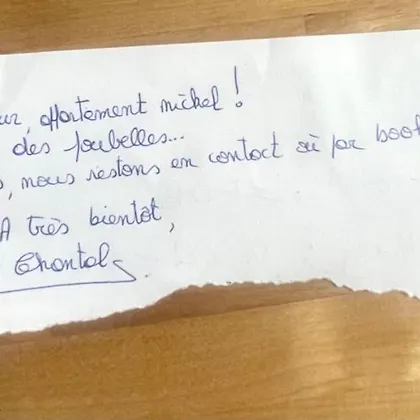 ur, appartement nickel !
des poubelles...
, nous restons en contact où par boo
A très bientôt,
Chantal